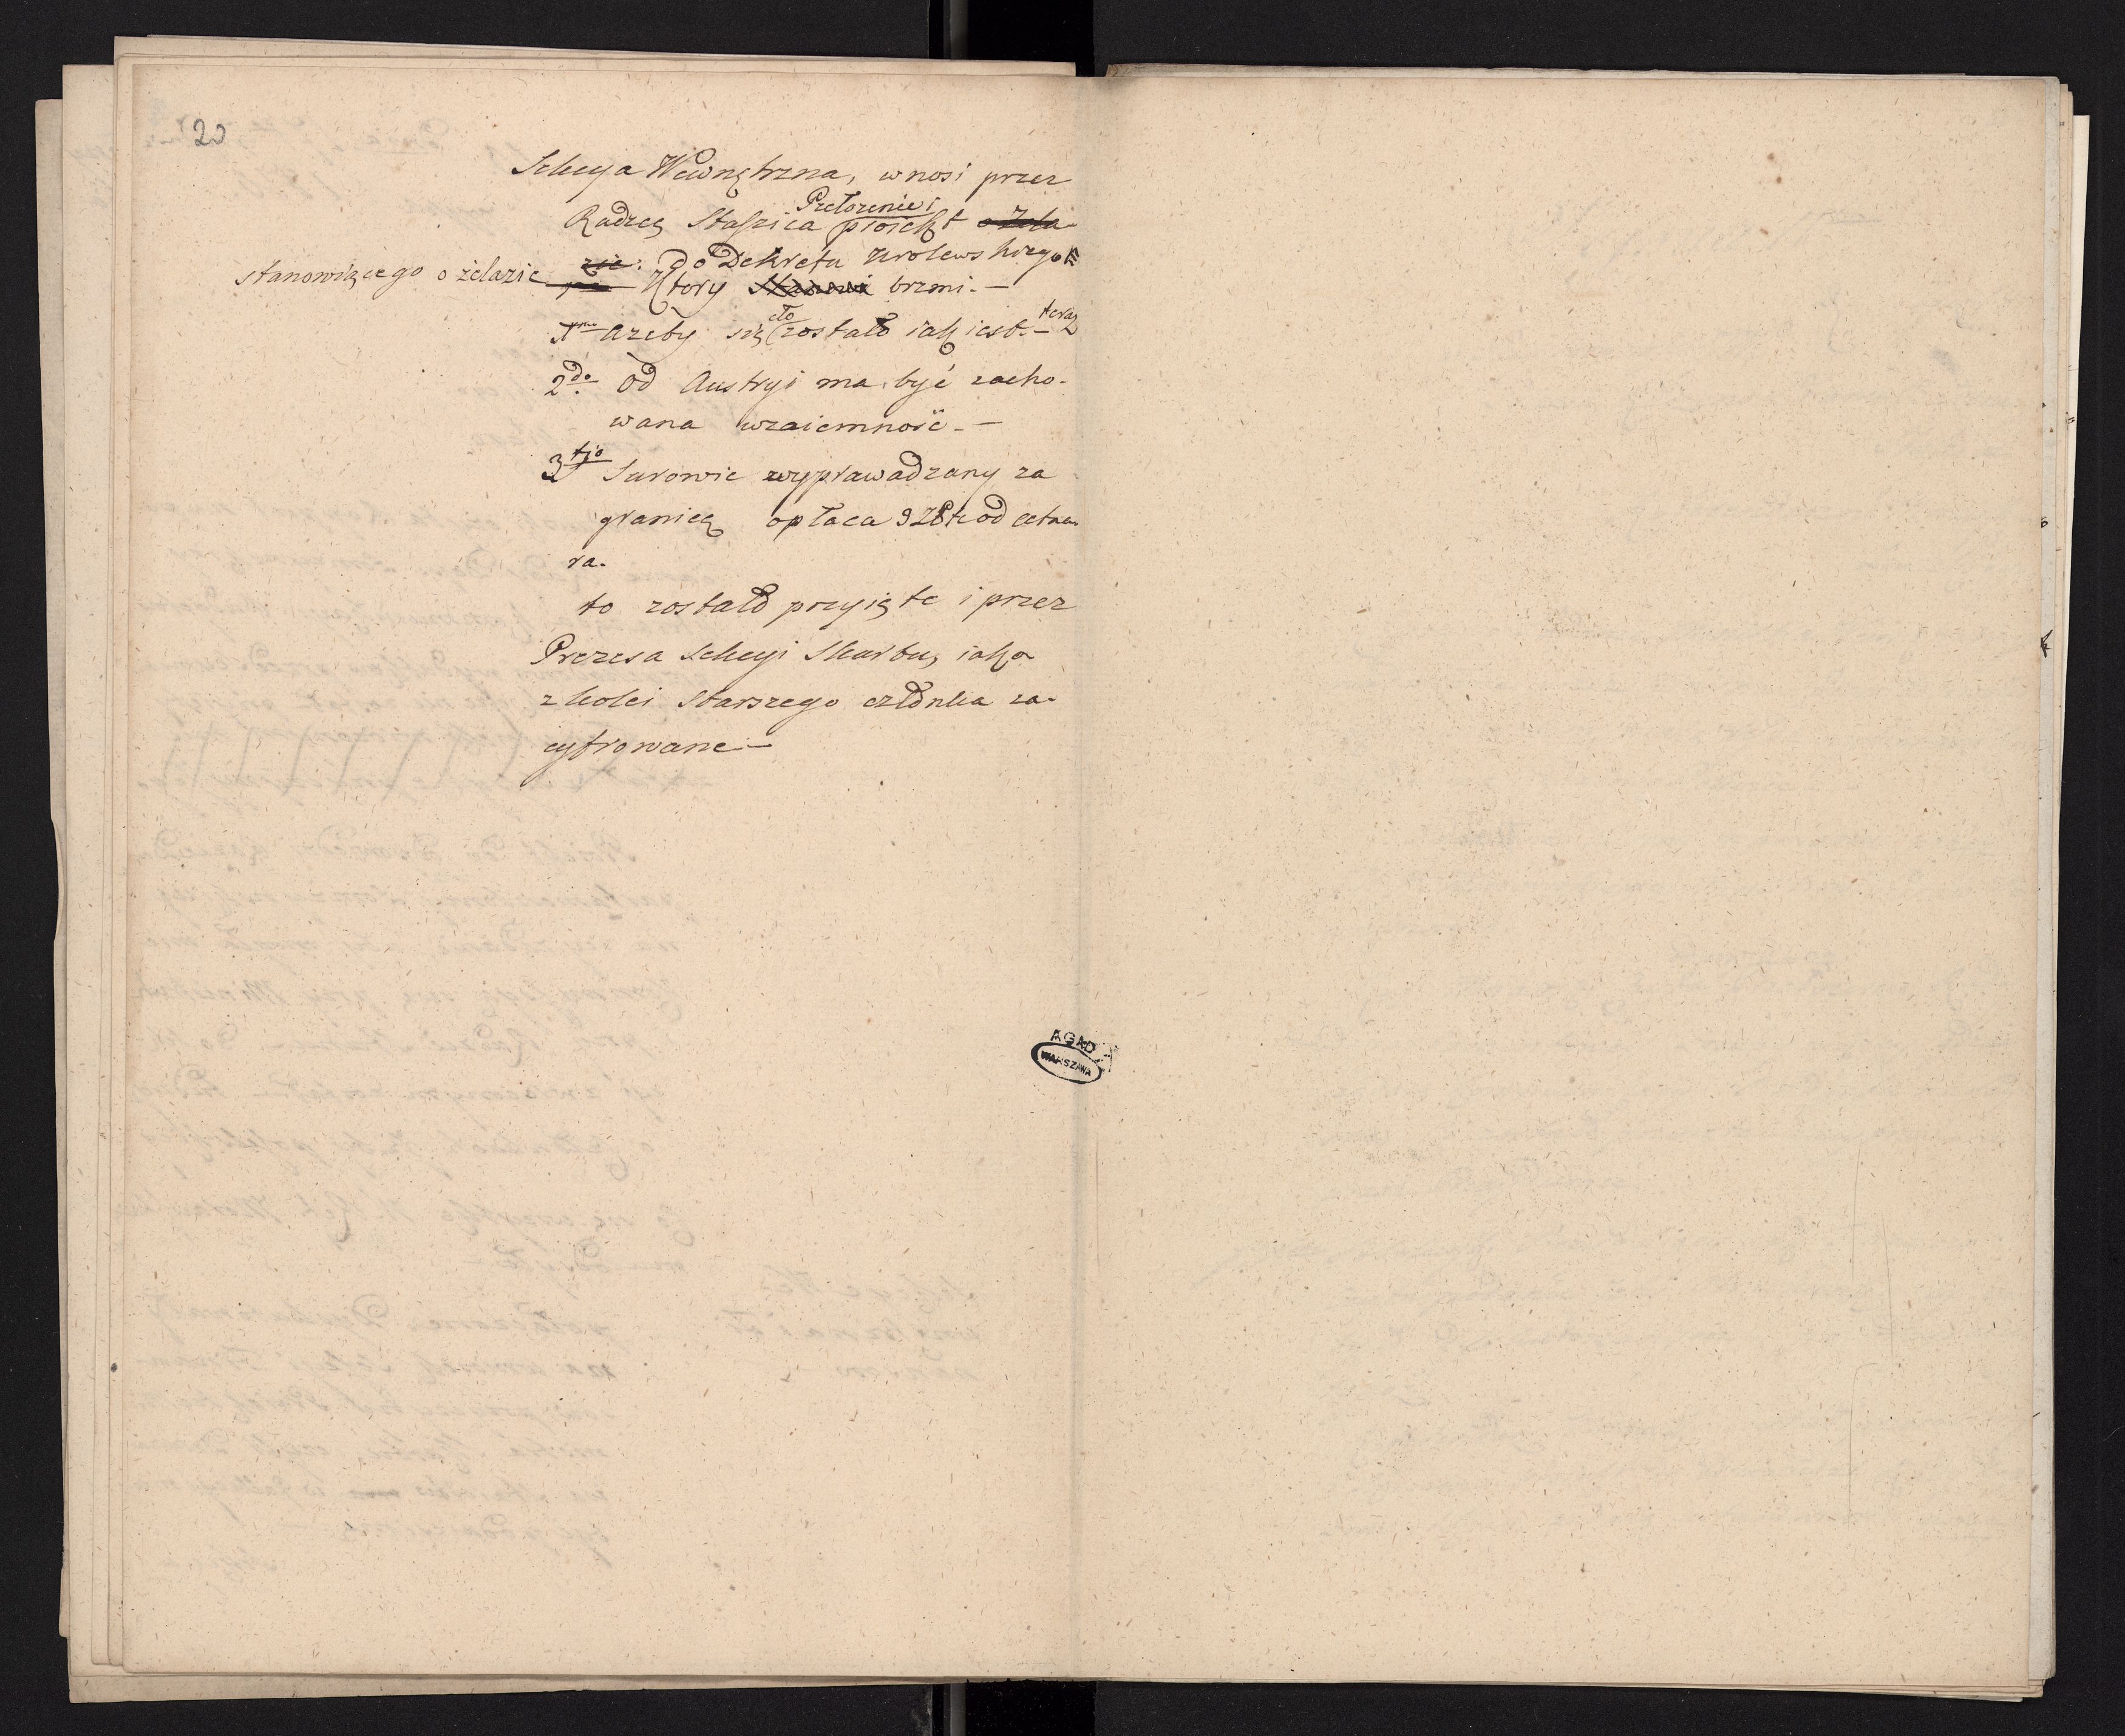 20
Sekcya Wewnętrzna, wnosi przez
Przełożenie i
Radzcę Staszica proiekt o Żela-
zie: do Dekretu Krolewskiego
stanowiącego o żelazie
Ktory brzmi. —
1mo ażeby się cło zostało iak iest. — teraz
2do od Austryi ma być zacho-
wana wzaiemność. —
3tio Surowie wyprawadzany za
granicę opłaca 9 Złt od cetna-
ra.
to zostało przyięte i przez
Prezesa Sekcyi Skarbu, iako
z kolei Starszego członka za-
cyfrowane —
AGAD
WARSZAWA